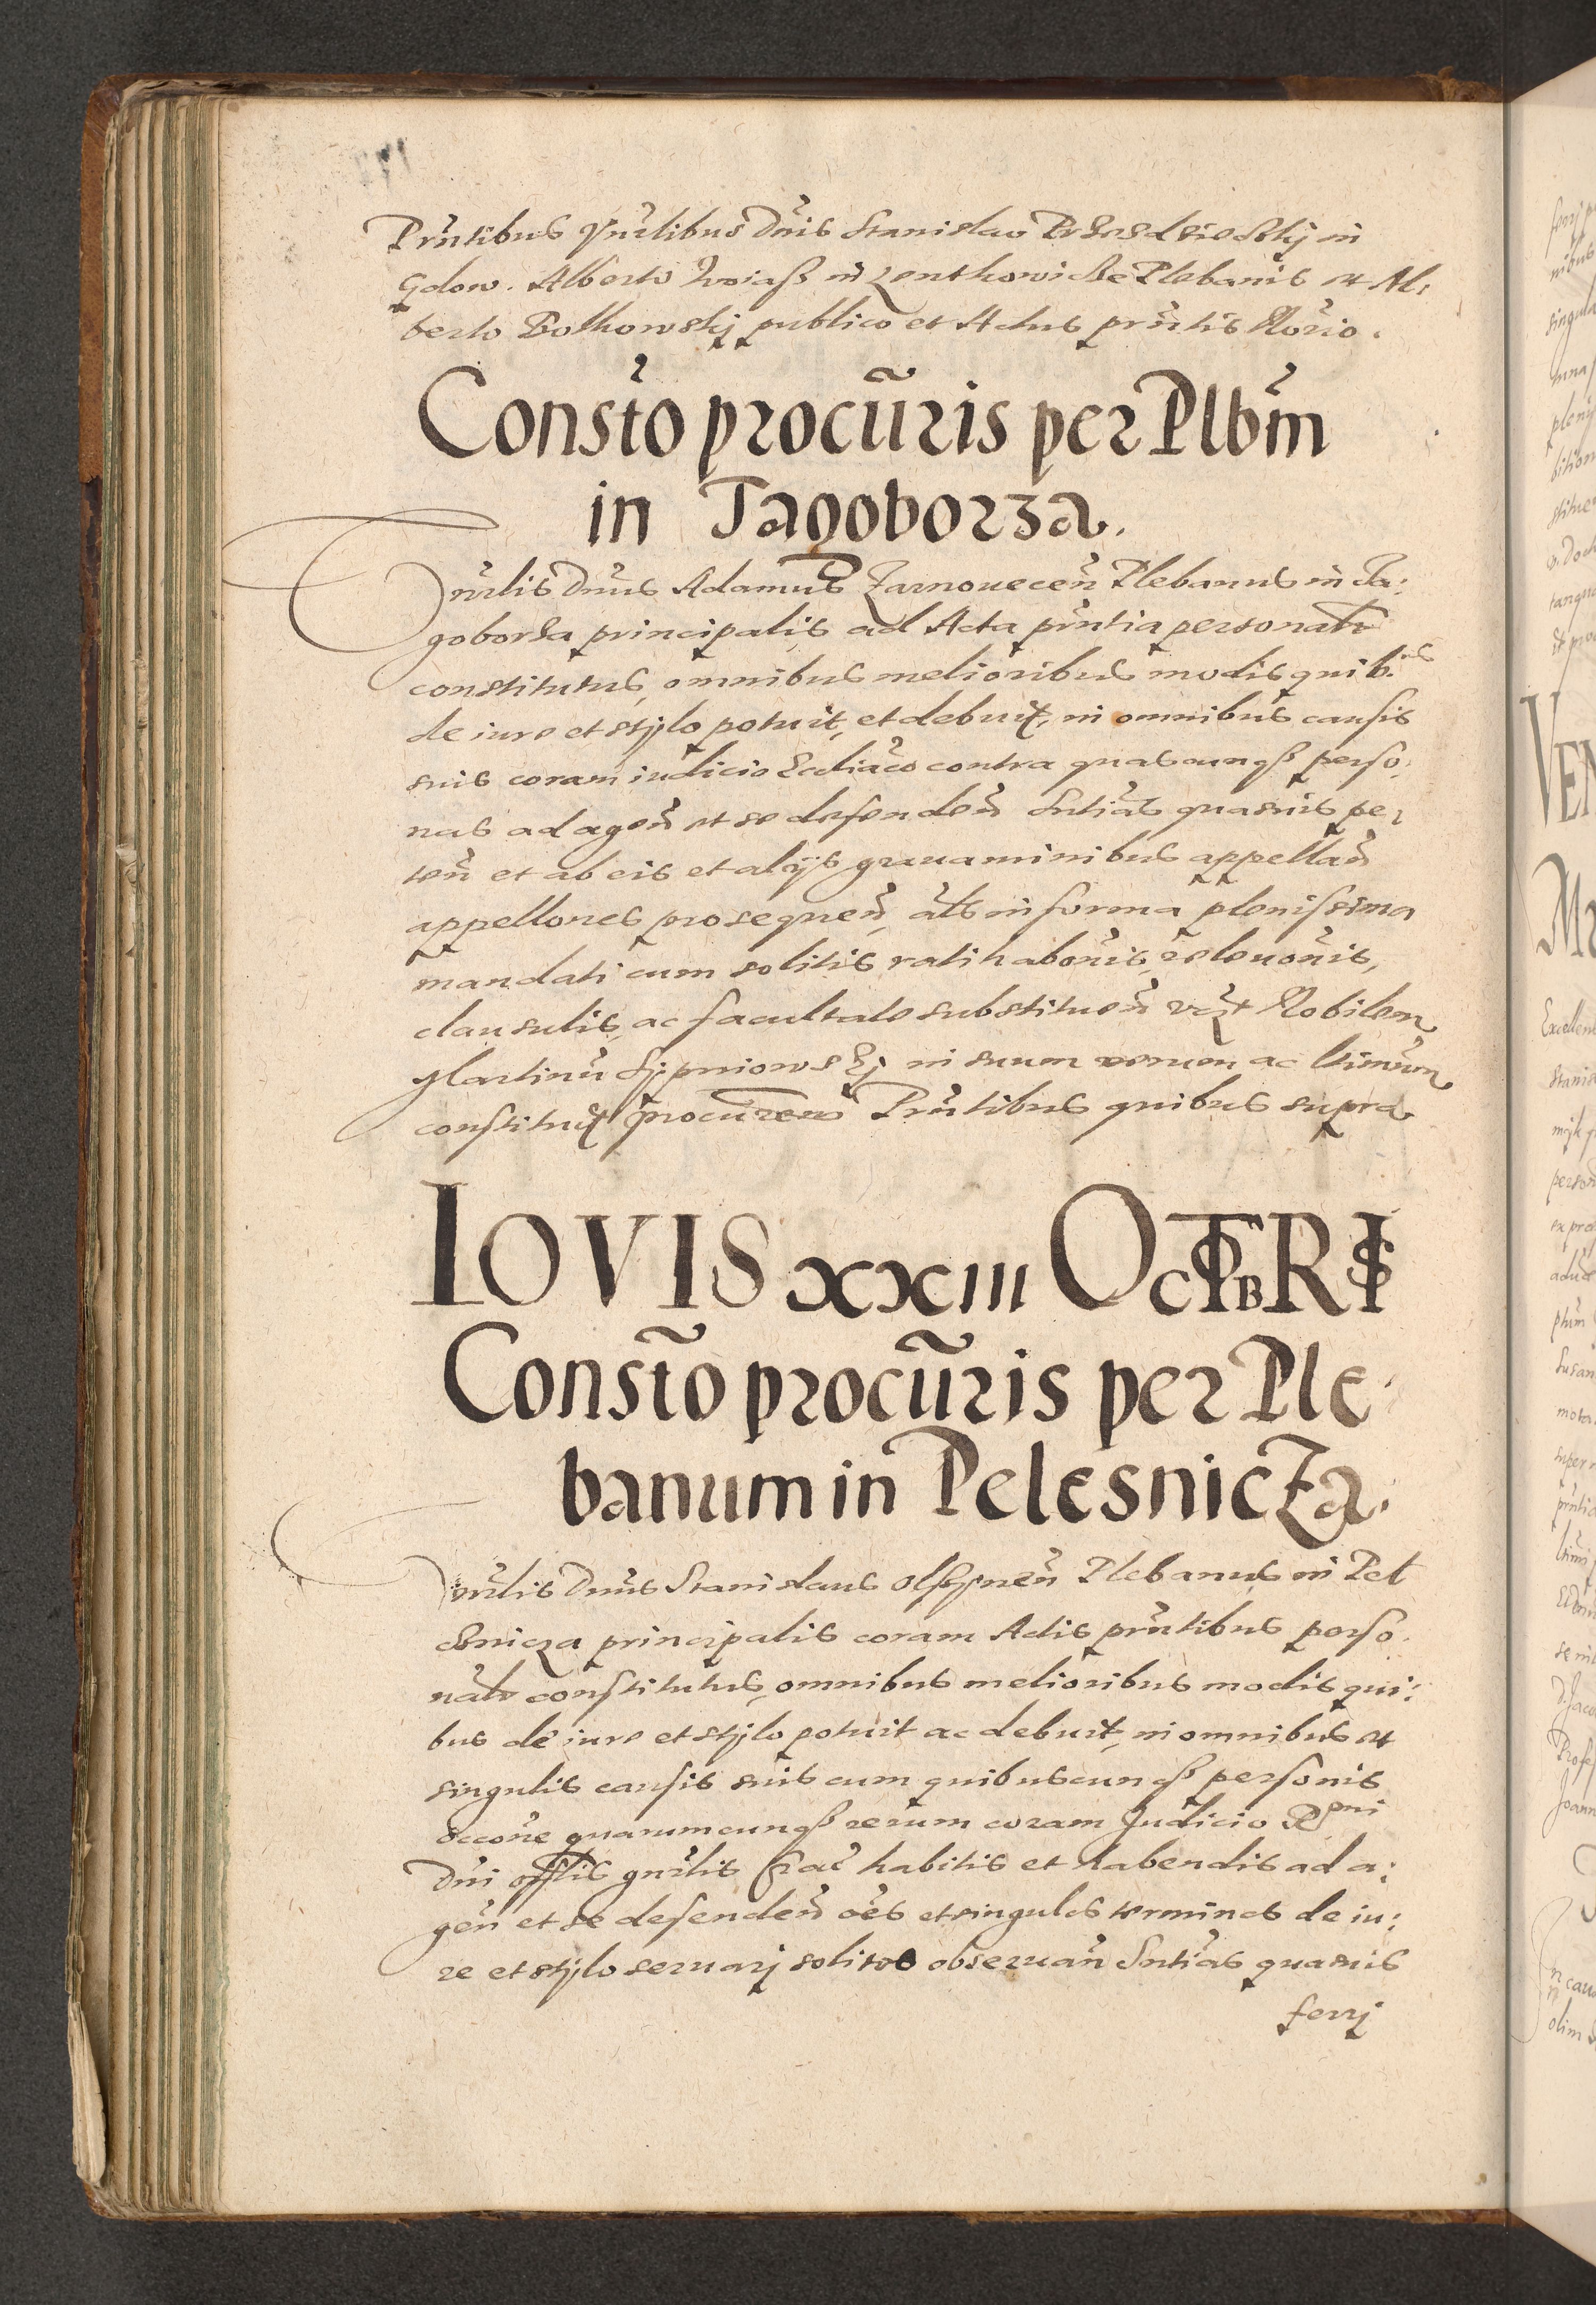 Prñtibus Vñrlibus Dñis Stanislao in
Gdow. Alberto in Plebanis et Al:
berto publico et Actus prñtis Notrio.
Consto procũris per Plbm
in Jagoborza.
Vnrlis Dnus Adamus Zarnouecen̄ Plebanus in Ja:
goborza principalis ad Acta prñtia personalr
constitutus, omnibus melioribus modis quib.us
de iure et stylo potuit, et debuit, in omnibus causis
suis coram iudicio contra quascunqз perso,
nas ad agen̄ et se defenden̄ Sntias quasuis pe,
ten̄ et ab eis et alijs grauaminibus appellan̄
appellones prosequen̄, als in forma plenissima
mandati cum solitis ratihabonis, releuonis,
clausulis, ac facultate substituen̄ Nobilem
Martinũ in suum verum ac ltimum
constituit procurem Prñtibus quibus supra
IOVIS XXIII OCTBRIS
Consto procũris per Ple
banum in Pelesnicza.
Vnrlis Dnus Stanislaus Plebanus in Pel
esnicza principalis coram Actis prñtibus perso.
nalr constitutus, omnibus melioribus modis qui:
bus de iure et stylo potuit ac debuit, in omnibus et
singulis causis suis cum quibuscunqз personis
occone quarumcunqз rerum coram Judicio Rndi
Dni offlis gnrlis Crac habitis et habendis ad a:
gen̄ et se defenden̄ oes et singulos terminos de iu:
re et stylo seruarj solitos obseruan̄ Sntias quasuis
ferrj